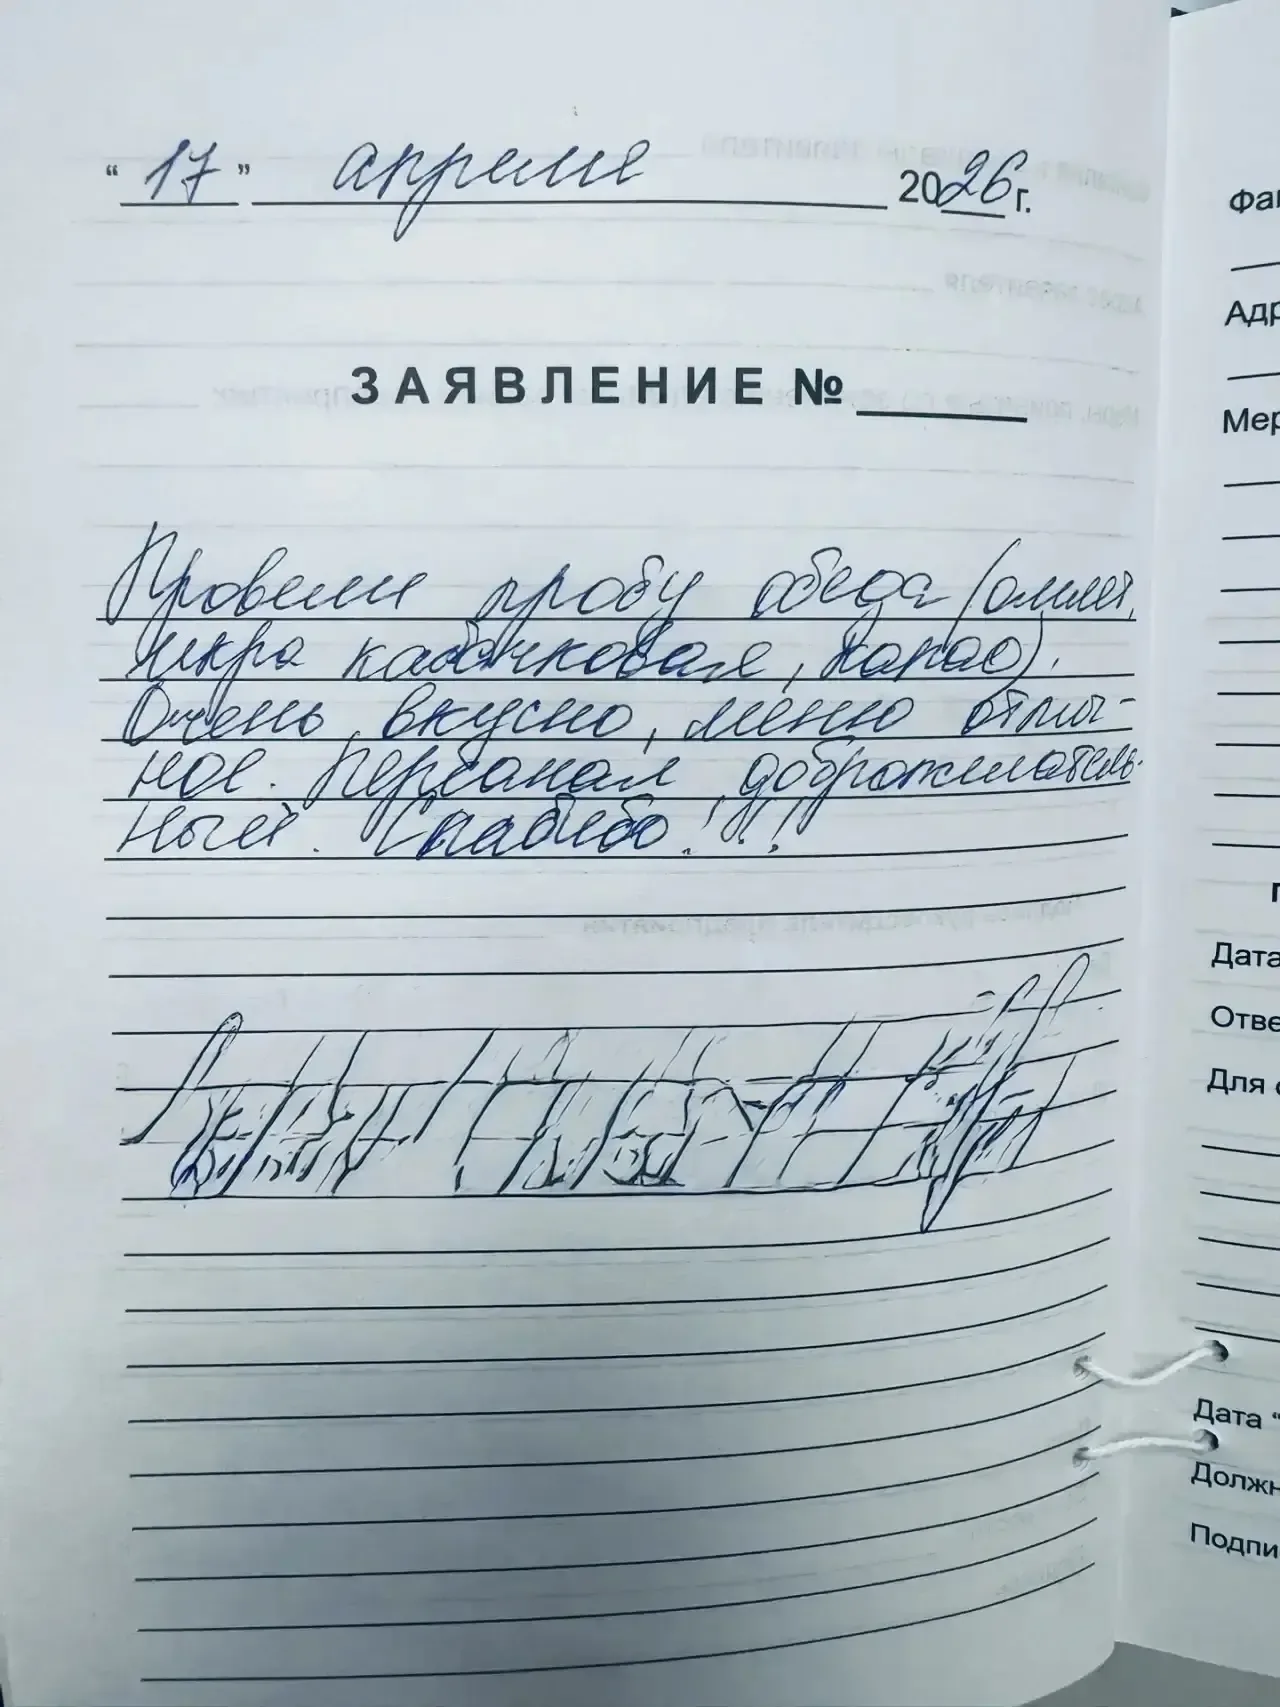 “17” апреля 2026 г.
ЗАЯВЛЕНИЕ № 
Провели пробу обеда (омлет,
икра кабачковая, какао).
Очень вкусно, меню отлич-
ное. Персонал доброжелатель-
ный. Спасибо!!!
Фам
Адр
Мер
Дата
Отве
Для
Дата “
Должн
Подпи